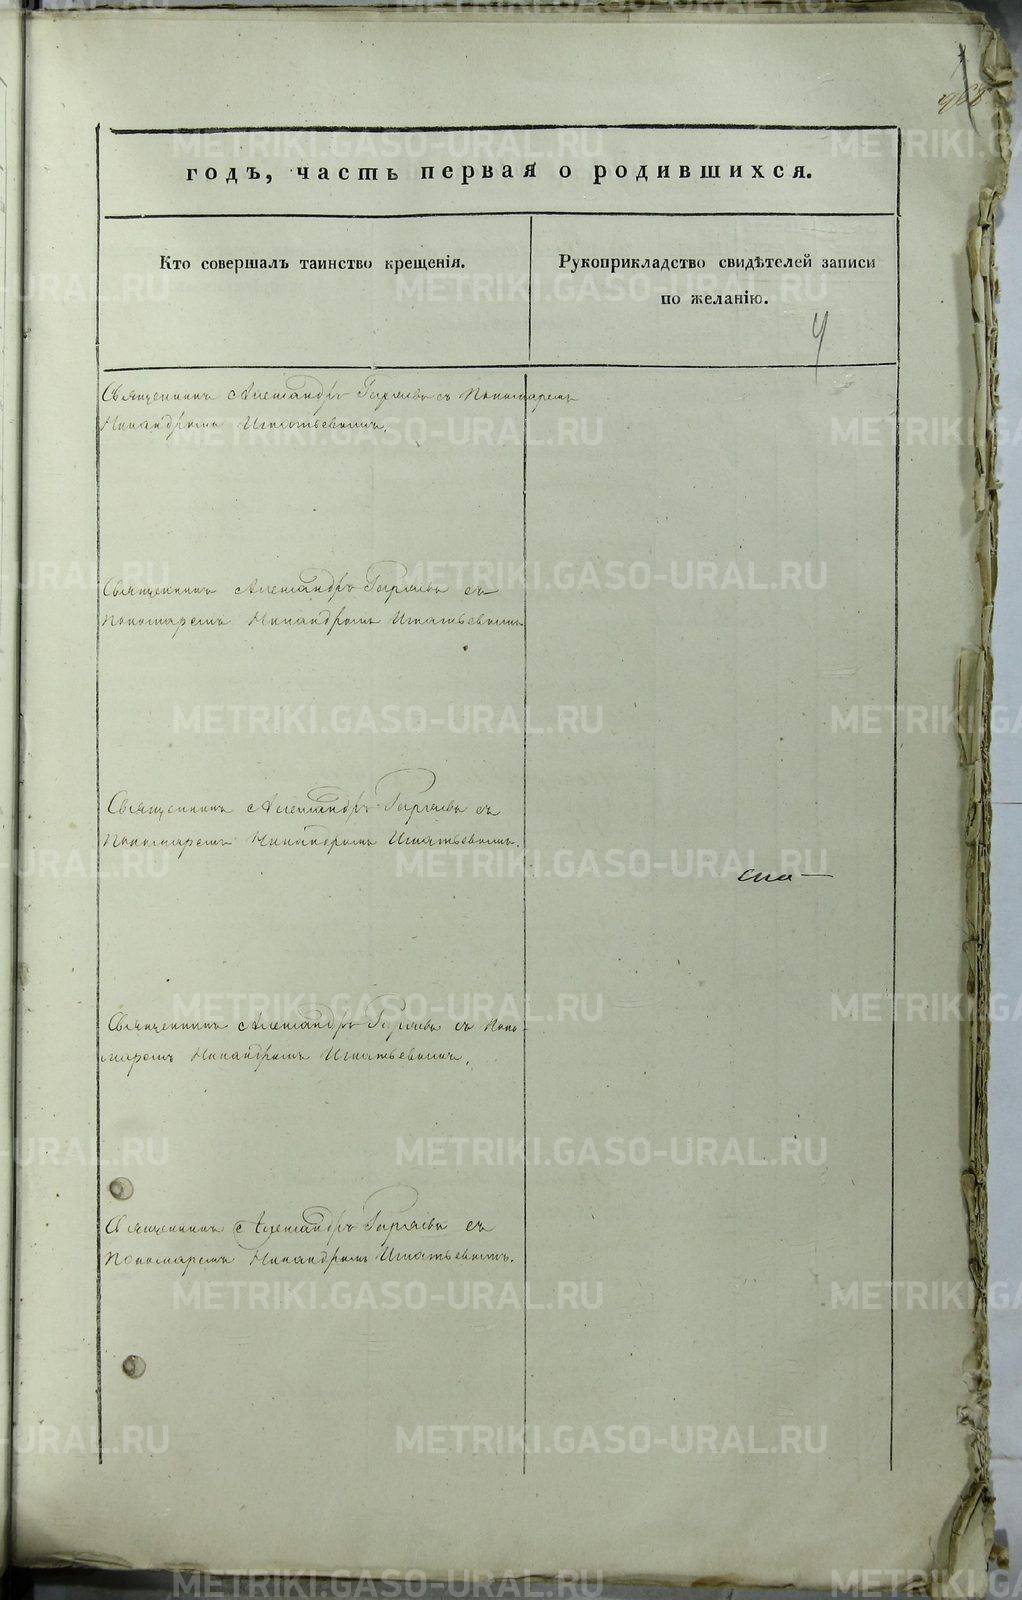 годъ, часть первая о родившихся.
Кто совершалъ таинство крещенія.
Рукоприкладство свидѣтелей записи
по желанію.
Священникъ Александръ съ Пономаремъ
Никандромъ Игнатьевымъ.
Священникъ Александръ съ
Пономаремъ Никандромъ Игнатьевымъ
Священникъ Александръ съ
Пономаремъ Никандромъ Игнатьевымъ.
Священникъ Александръ съ Поно-
маремъ Никандромъ Игнатьевымъ.
Священникъ Александръ съ
Пономаремъ Никандромъ Игнатьевымъ.
METRIKI.GASO-URAL.RU